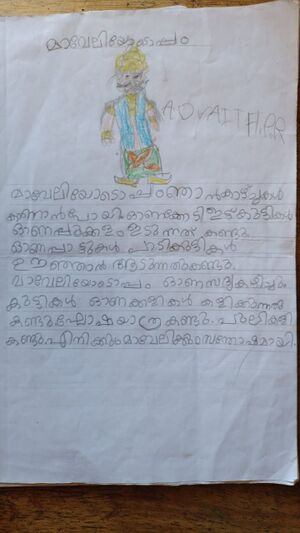 മാവേലിയോടൊപ്പം
ADVAITH.P.R
മാവേലിയോടൊപ്പം ഞാൻ കാഴ്ചകൾ
കാണാൻ പോയി. ഓണക്കോടി ഇട്ട് കുട്ടികൾ
ഓണപ്പൂക്കളം ഇടുന്നത് കണ്ടു.
ഓണപ്പാട്ടുകൾ പാടി കുട്ടികൾ
ഊഞ്ഞാൽ ആടുന്നതുകണ്ടു.
മാവേലിയോടൊപ്പം ഓണസദ്യ കഴിച്ചു.
കുട്ടികൾ ഓണക്കളികൾ കളിക്കുന്നതു
കണ്ടു. ഘോഷയാത്ര കണ്ടു. പുലികളി
കണ്ടു. എനിക്കും മാവേലിക്കും സന്തോഷമായി.